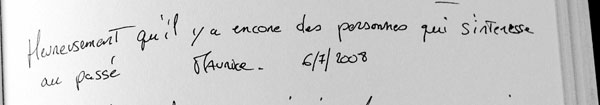 Heureusement qu'il y a encore des personnes qui s'interesse
au passé Maurice. 6/7/2008